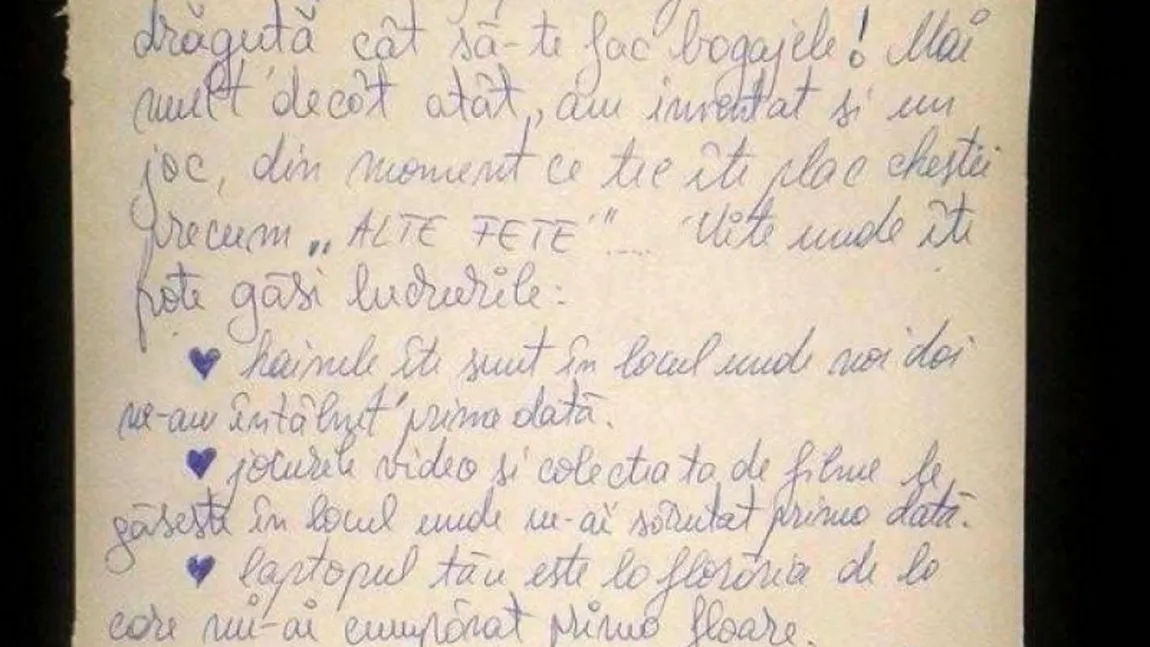 drăguță cât să-te fac bagajele! Mai
mult decât atât, am inventat si un
joc, din moment ce tie îte plac chestii
precum „ALTE FETE"... Uite unde îte
pote găsi lucrurile:
♥ hainele îte sunt în locul unde noi doi
ne-am întâlnit prima dată.
♥ jocurile video si colectia ta de filme le
găseste în locul unde m-ai sărutat prima dată.
♥ laptopul tău este la florăria de la
care mi-ai cumpărat prima floare.